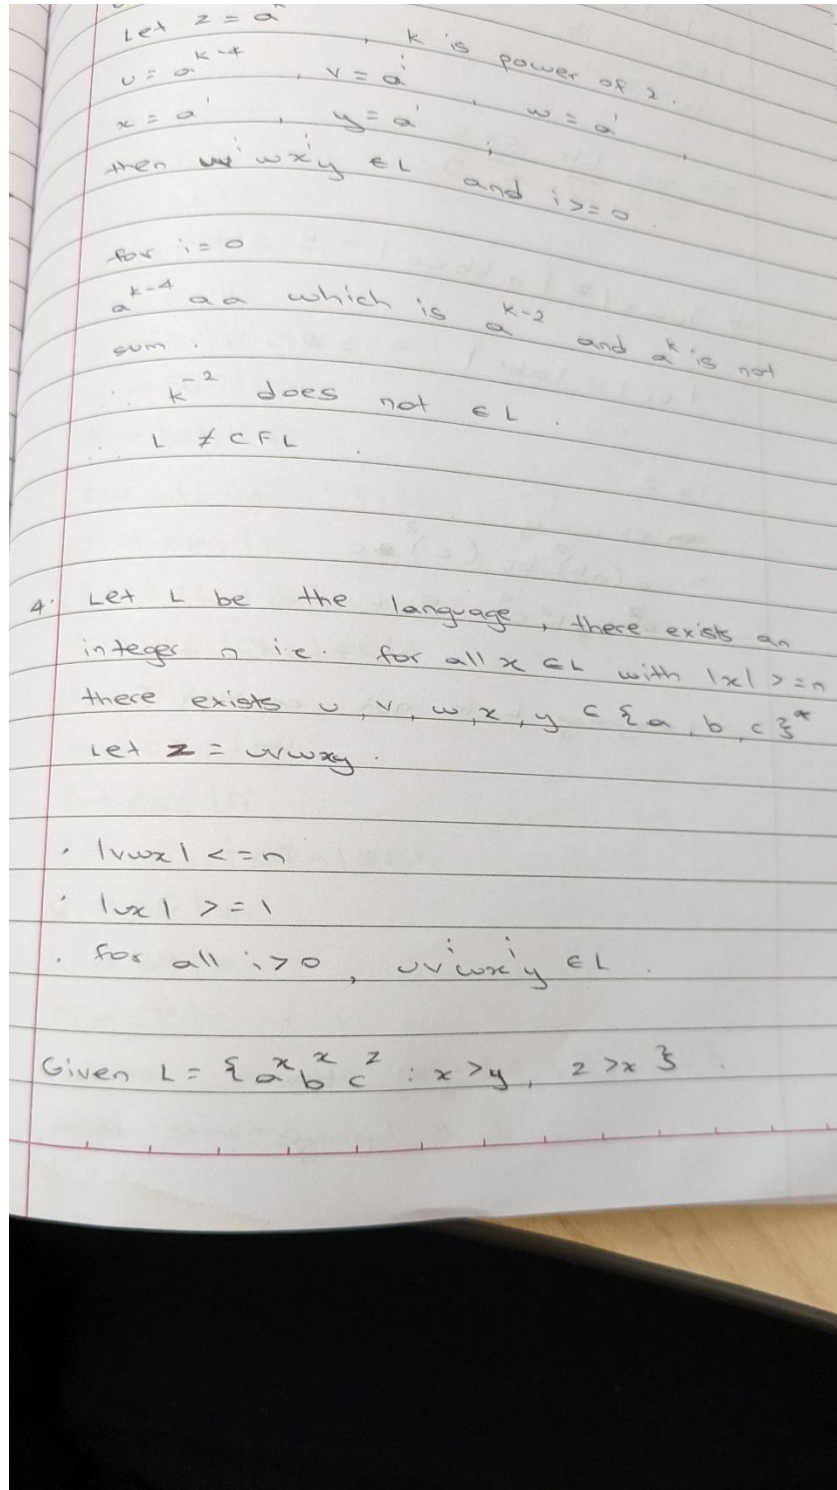 Let z = a^k, k is power of 2.
u = a^{k-4}, v = a^1, w = a^1,
x = a^1, y = a^1;
then uv^i wx^i y ∈ L and i >= 0.
for i = 0
a^{k-4} aa which is a^{k-2} and a^k is not
sum.
∴ k^{-2} does not ∈ L.
∴ L ≠ CFL.
4. Let L be the language, there exists an
integer n i.e. for all x ∈ L with |x| >= n
there exists u, v, w, x, y ⊂ {a, b, c}*
Let z = uvwxy.
· |vwx| <= n
· |vx| >= 1
· for all i > 0, uv^i wx^i y ∈ L.
Given L = {a^x b^x c^z : x > y, z > x}.